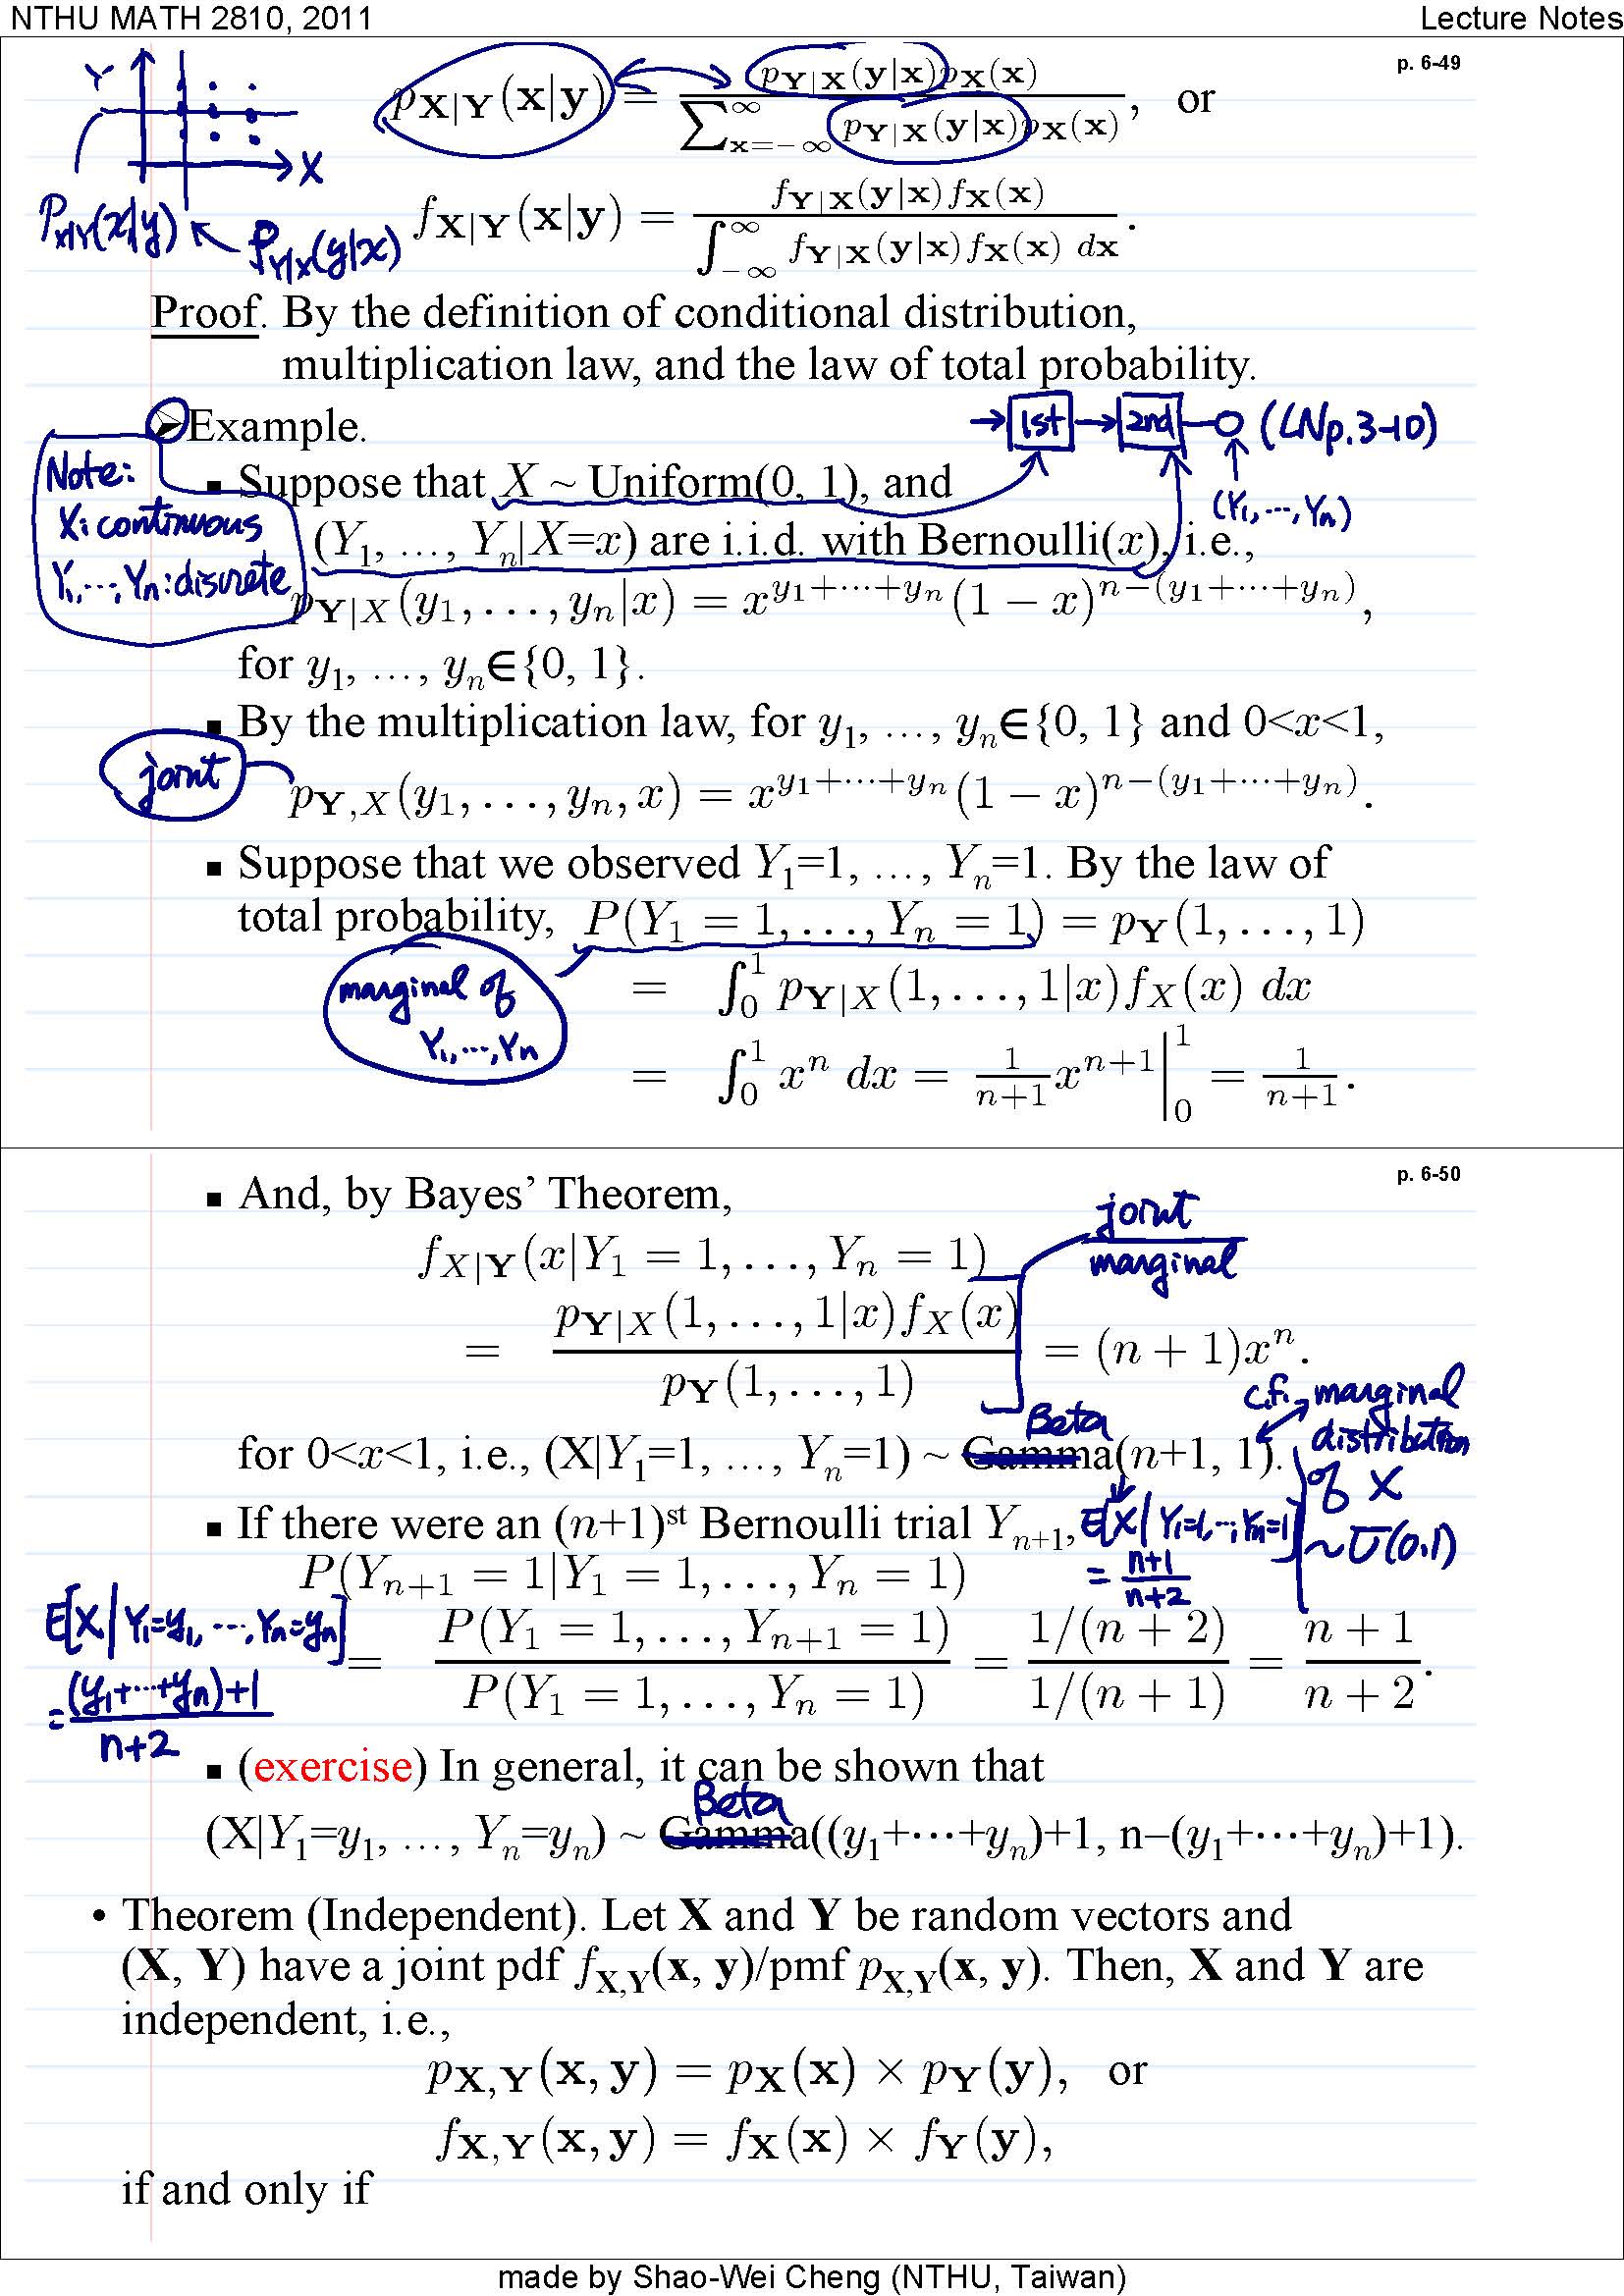 NTHU MATH 2810, 2011 Lecture Notes
p. 6-49
Y
X
P_{X|Y}(x|y)
P_{Y|X}(y|x)
p_{X|Y}(x|y) = \frac{p_{Y|X}(y|x)p_X(x)}{\sum_{x=-∞}^{∞} p_{Y|X}(y|x)p_X(x)}, or
f_{X|Y}(x|y) = \frac{f_{Y|X}(y|x)f_X(x)}{\int_{-∞}^{∞} f_{Y|X}(y|x)f_X(x) dx}.
Proof. By the definition of conditional distribution,
multiplication law, and the law of total probability.
Example.
→ 1st → 2nd (LNp.3-10)
(Y₁, ⋯, Yn)
Note:
X: continuous
Y₁, ⋯, Yn: discrete
▪ Suppose that X ~ Uniform(0, 1), and
(Y₁, …, Yn|X=x) are i.i.d. with Bernoulli(x), i.e.,
p_{Y|X}(y₁, …, yn|x) = x^{y₁+⋯+yn}(1 − x)^{n−(y₁+⋯+yn)},
for y₁, …, yn∈{0, 1}.
▪ By the multiplication law, for y₁, …, yn∈{0, 1} and 0<x<1,
joint
p_{Y,X}(y₁, …, yn, x) = x^{y₁+⋯+yn}(1 − x)^{n−(y₁+⋯+yn)}.
▪ Suppose that we observed Y₁=1, …, Yn=1. By the law of
total probability, P(Y₁ = 1, …, Yn = 1) = p_Y(1, …, 1)
marginal of
Y₁, ⋯, Yn
= \int_0^1 p_{Y|X}(1, …, 1|x)f_X(x) dx
= \int_0^1 x^n dx = \frac{1}{n+1}x^{n+1}|_0^1 = \frac{1}{n+1}.
p. 6-50
▪ And, by Bayes’ Theorem,
joint
marginal
f_{X|Y}(x|Y₁ = 1, …, Yn = 1)
= \frac{p_{Y|X}(1, …, 1|x)f_X(x)}{p_Y(1, …, 1)} = (n + 1)x^n.
c.f. marginal
distribution
of X
~ U(0,1)
Beta
for 0<x<1, i.e., (X|Y₁=1, …, Yn=1) ~ Gamma(n+1, 1).
▪ If there were an (n+1)st Bernoulli trial Y_{n+1},
E[X|Y₁=1, ⋯, Yn=1]
= \frac{n+1}{n+2}
P(Y_{n+1} = 1|Y₁ = 1, …, Yn = 1)
= \frac{P(Y₁ = 1, …, Y_{n+1} = 1)}{P(Y₁ = 1, …, Yn = 1)} = \frac{1/(n + 2)}{1/(n + 1)} = \frac{n + 1}{n + 2}.
E[X|Y₁=y₁, ⋯, Yn=yn]
= \frac{(y₁+⋯+yn)+1}{n+2}
▪ (exercise) In general, it can be shown that
Beta
(X|Y₁=y₁, …, Yn=yn) ~ Gamma((y₁+⋯+yn)+1, n–(y₁+⋯+yn)+1).
• Theorem (Independent). Let X and Y be random vectors and
(X, Y) have a joint pdf f_{X,Y}(x, y)/pmf p_{X,Y}(x, y). Then, X and Y are
independent, i.e.,
p_{X,Y}(x, y) = p_X(x) × p_Y(y), or
f_{X,Y}(x, y) = f_X(x) × f_Y(y),
if and only if
made by Shao-Wei Cheng (NTHU, Taiwan)